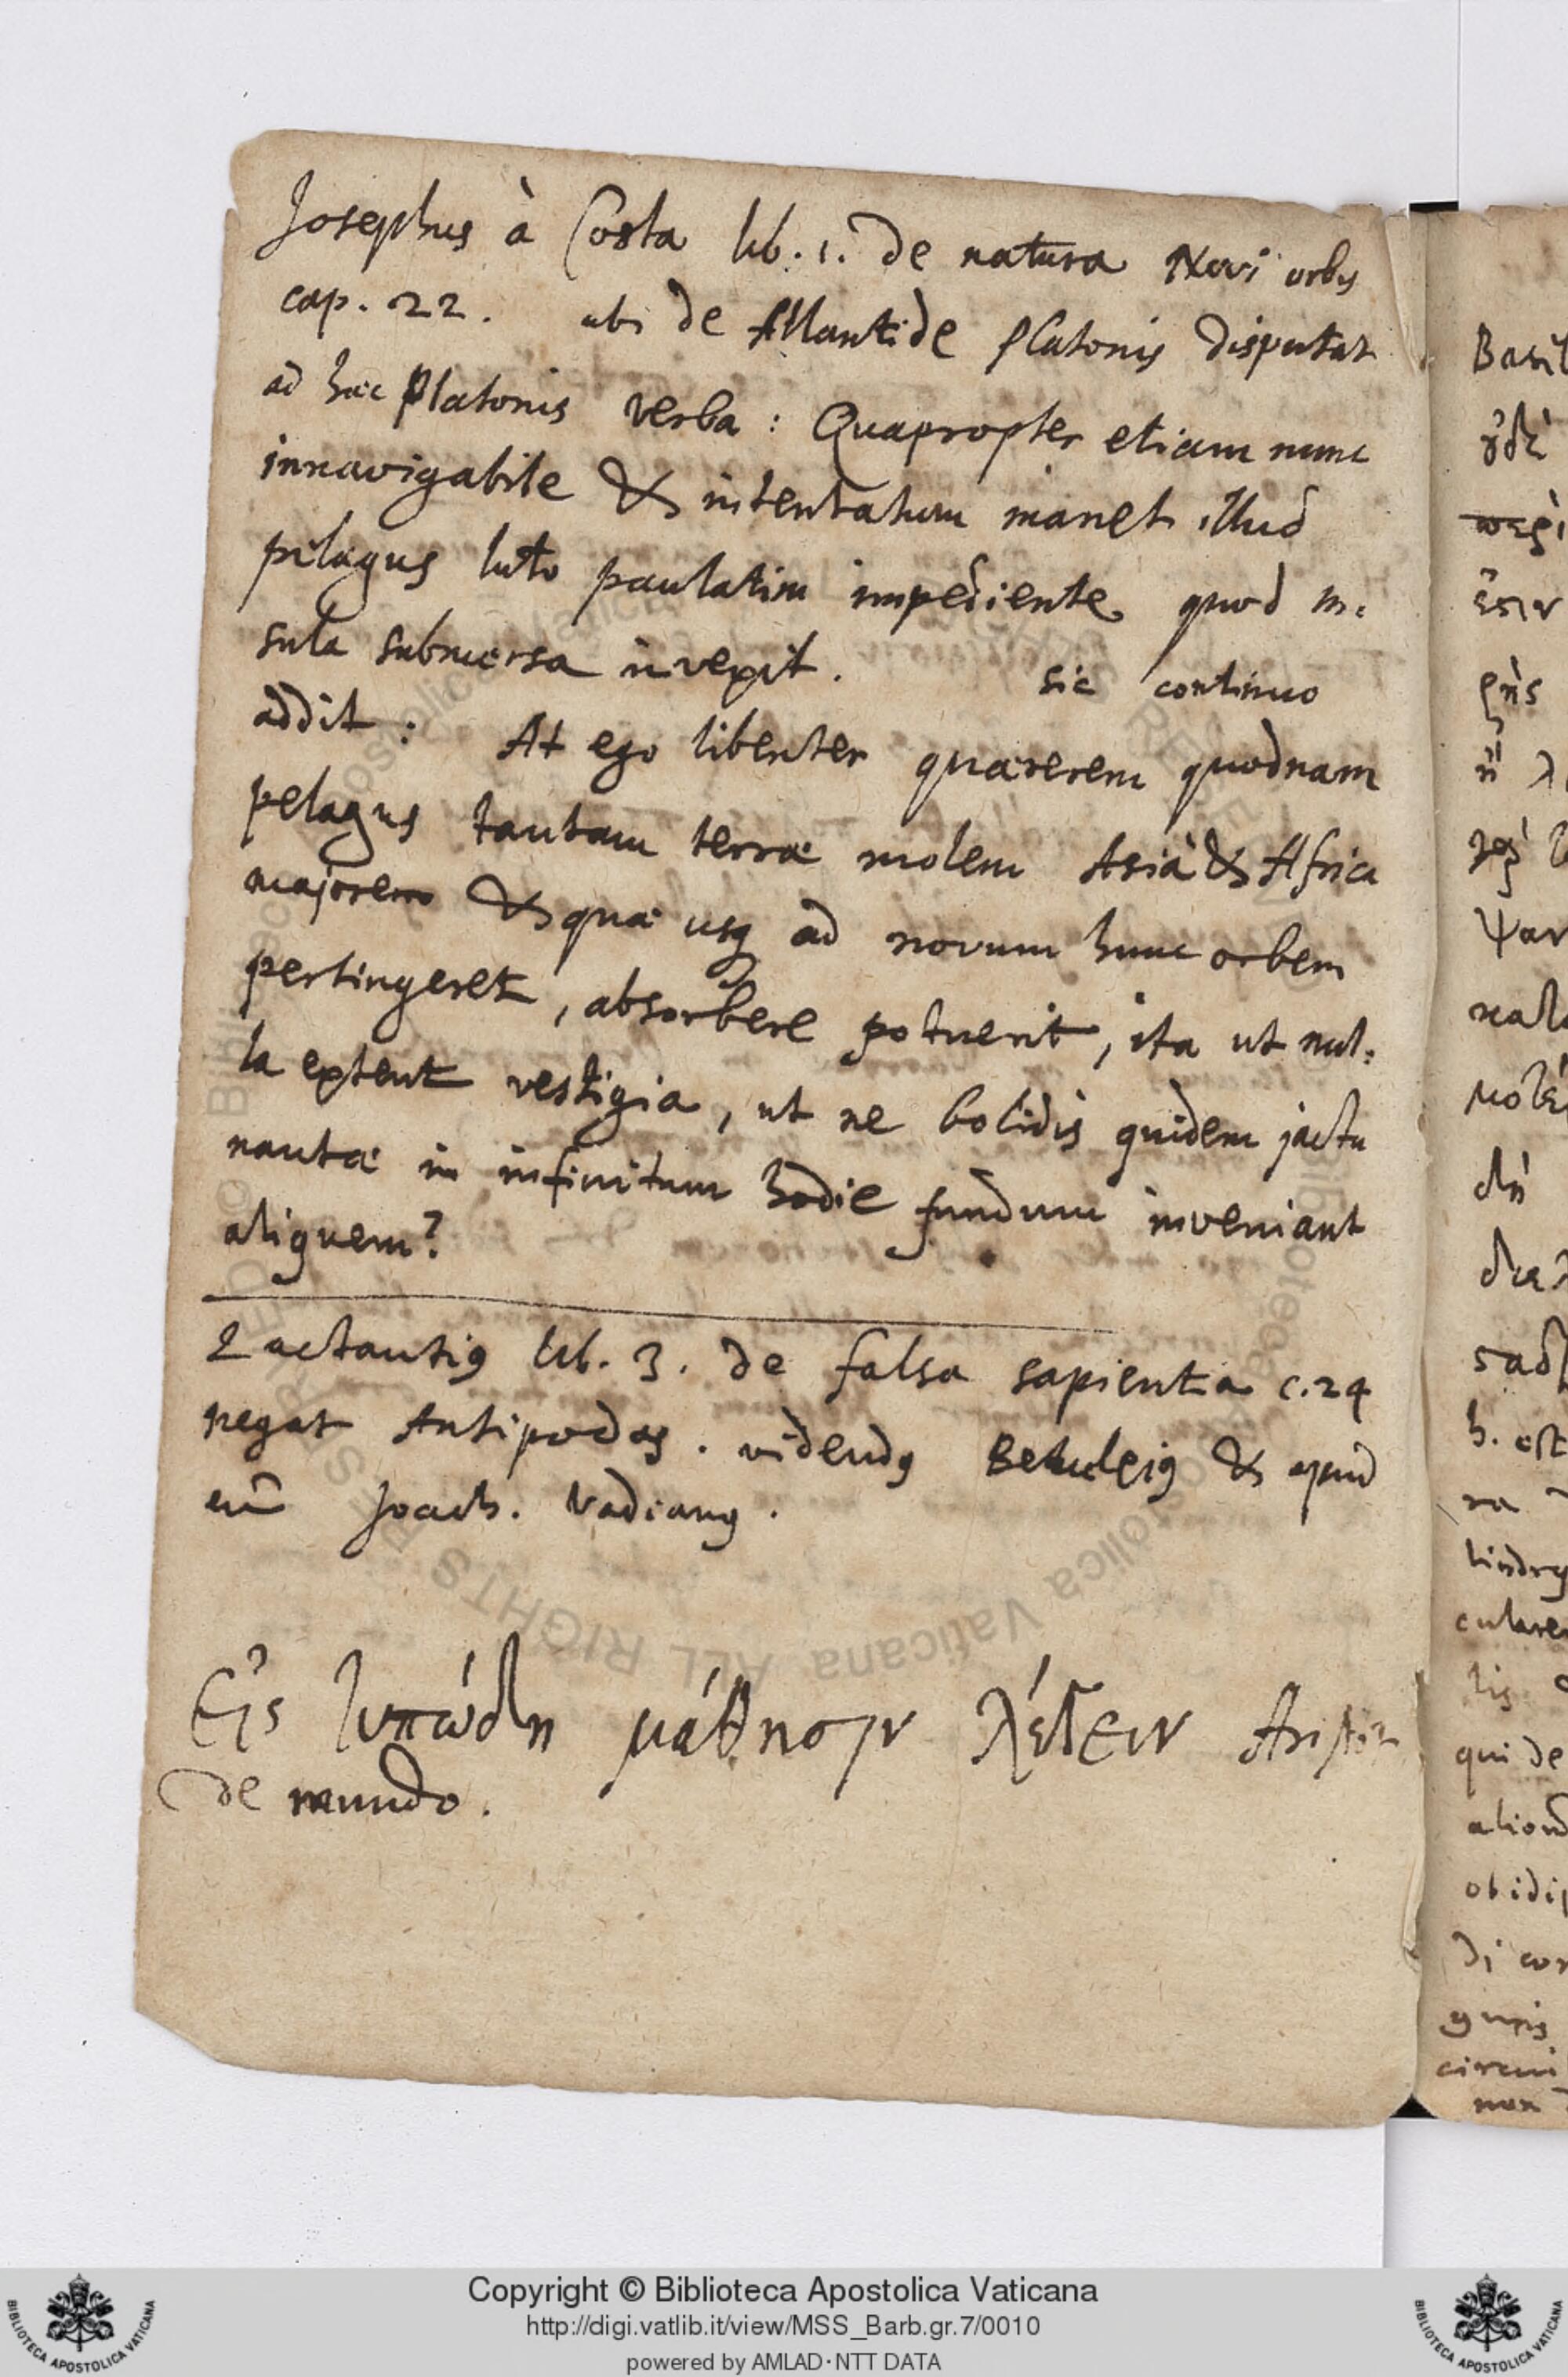 Josephus à Costa lib. 1. de natura Novi orbis
cap. 22. ubi de Atlantide Platonis disputat
ad hæc Platonis verba : Quapropter etiam nunc
innavigabile & intentatum manet illud
pelagus luto paulatim impediente quod in:
sula submersa invexit. sic continuo
addit : At ego libenter quærerem quodnam
pelagus tantam terræ molem Asiâ & Africa
majorem & quæ usq ad novum hunc orbem
pertingeret, absorbere potuerit, ita ut nul:
la extent vestigia, ut ne bolidis quidem jactu
nautæ in infinitum hodie fundum inveniant
aliquem?
Lactantius lib. 3. de falsa sapientia c. 24
negat Antipodas. videndus Betuleius & apud
eum Joach. Vadianus.
Εἰς μάθησιν
de mundo.
Basil
ὐδὲ
περὶ
ἔστιν
ρης
ἢ λ
ψαν
κατα
δὴ
δια
h. est
ra
culare
lis
qui de
di cor
circui
non
Copyright © Biblioteca Apostolica Vaticana
http://digi.vatlib.it/view/MSS_Barb.gr.7/0010
powered by AMLAD·NTT DATA
BIBLIOTECA APOSTOLICA VATICANA
BIBLIOTECA APOSTOLICA VATICANA